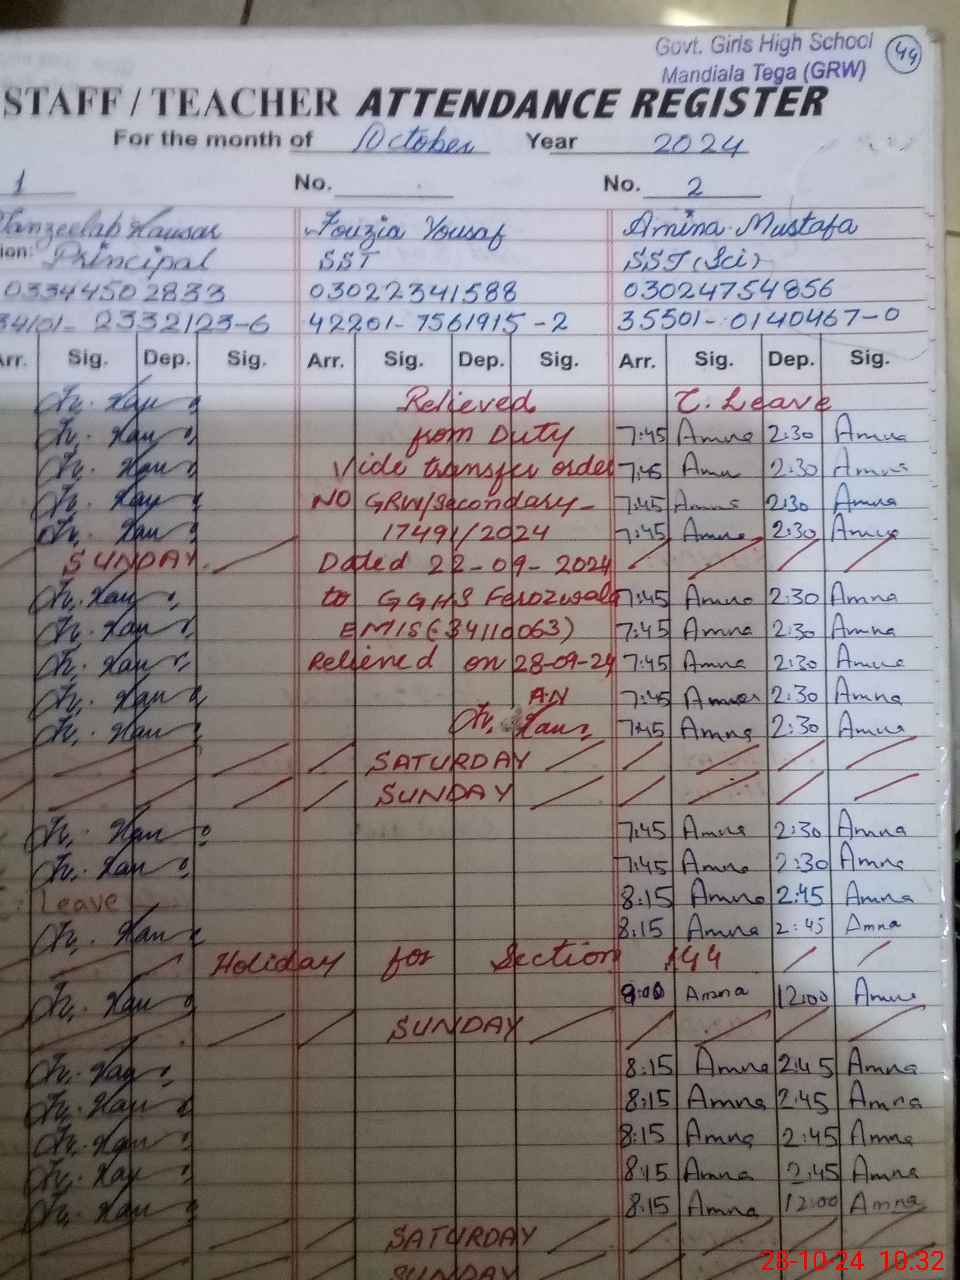 Govt. Girls High School 49
Mandiala Tega (GRW)
STAFF / TEACHER ATTENDANCE REGISTER
For the month of October Year 2024
1 No. No. 2
Tanzeelah Kausar Fouzia Yousaf Amina Mustafa
ion: Principal SST SST (Sci)
03344502833 03022341588 03024754856
34101-2332123-6 42201-7561915-2 35501-0140467-0
Arr. Sig. Dep. Sig. Arr. Sig. Dep. Sig. Arr. Sig. Dep. Sig.
Relieved C. Leave
from Duty 7:45 Amna 2:30 Amna
Vide transfer order 7:45 Amn 2:30 Amna
NO GRW/Secondary- 7:45 Amna 2:30 Amna
17491/2024 7:45 Amna 2:30 Amna
SUNDAY Dated 22-09-2024
to GGHS Ferozwala 7:45 Amna 2:30 Amna
EMIS (34110063) 7:45 Amna 2:30 Amna
Relieved on 28-09-24 7:45 Amna 2:30 Amna
AN 7:45 Amna 2:30 Amna
7:45 Amna 2:30 Amna
SATURDAY
SUNDAY
7:45 Amna 2:30 Amna
7:45 Amna 2:30 Amna
Leave 8:15 Amna 2:45 Amna
8:15 Amna 2:45 Amna
Holiday for Section 144
9:00 Amna 12:00 Amna
SUNDAY
8:15 Amna 2:45 Amna
8:15 Amna 2:45 Amna
8:15 Amna 2:45 Amna
8:15 Amna 2:45 Amna
8:15 Amna 12:00 Amna
SATURDAY
SUNDAY
28-10-24 10:32